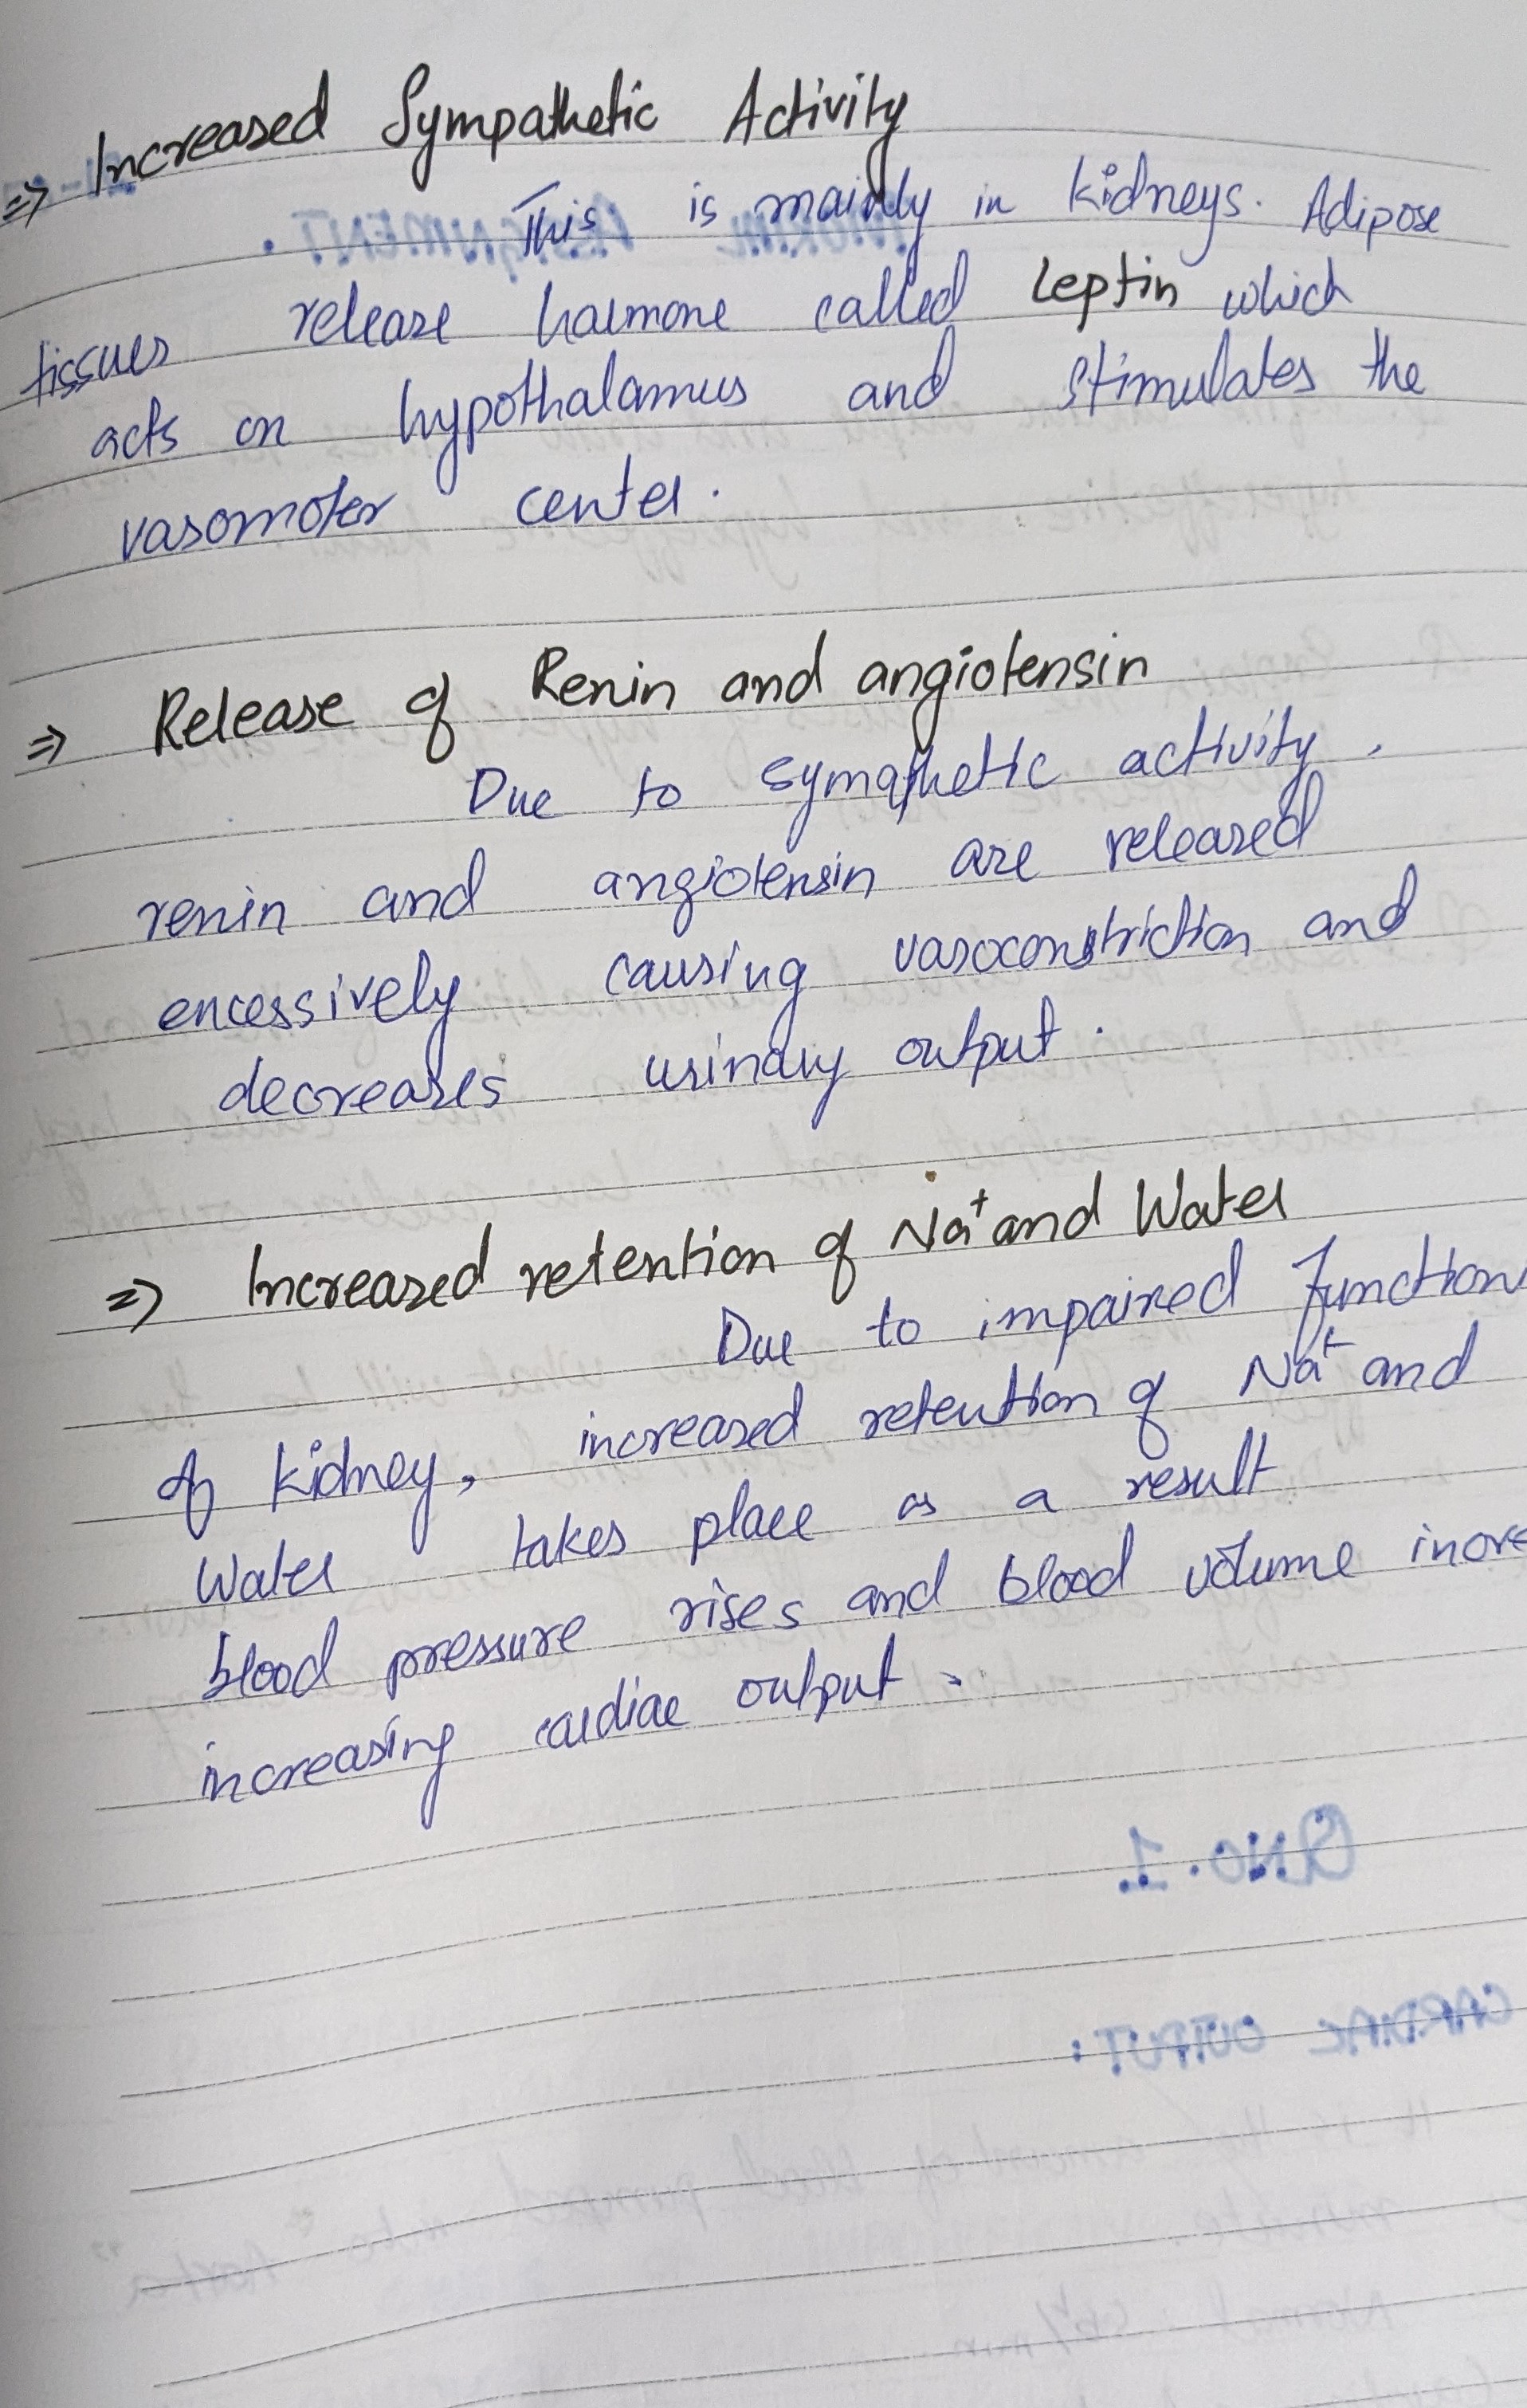 ⇒ Increased Sympathetic Activity
This is mainly in kidneys. Adipose
tissues release halmone called Leptin which
acts on hypothalamus and stimulates the
vasomoter centel.
⇒ Release of Renin and angiotensin
Due to symapthetic activity,
renin and angiotensin are released
encessively causing vasoconstriction and
decreases urinary output.
⇒ Increased retention of Na⁺ and Water
Due to impaired function
of kidney, increased retention of Na⁺ and
Water takes place as a result
blood pressure rises and blood volume incre
increasing cardiac output.
Q.NO.1.
CARDIAC OUTPUT: